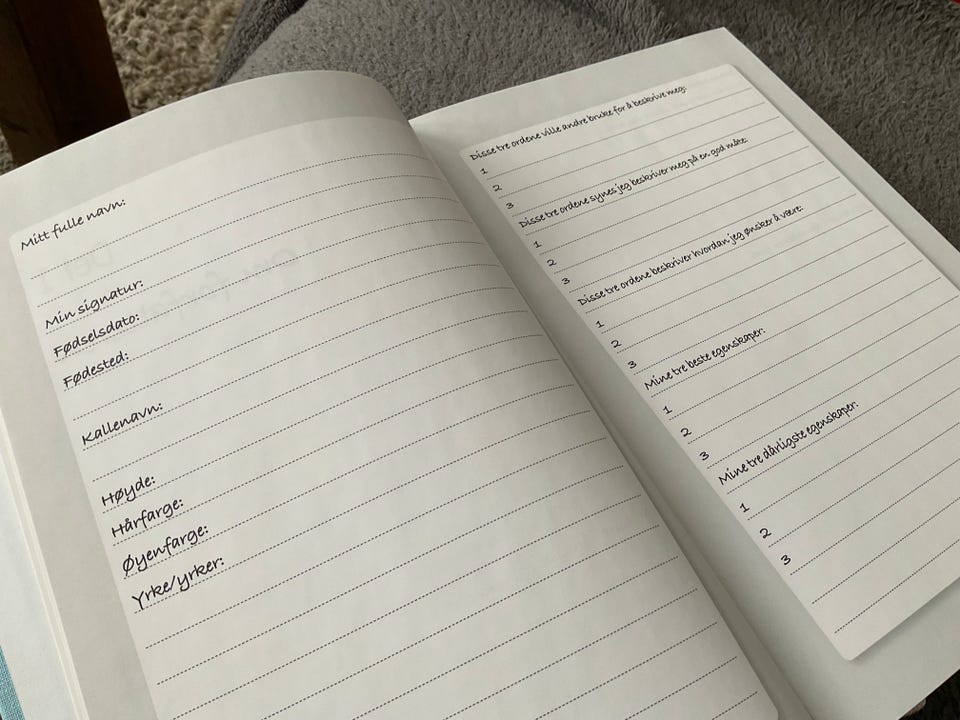 Mitt fulle navn:
Min signatur:
Fødselsdato:
Fødested:
Kallenavn:
Høyde:
Hårfarge:
Øyenfarge:
Yrke/yrker:
Disse tre ordene ville andre bruke for å beskrive meg:
1
2
3
Disse tre ordene synes jeg beskriver meg på en god måte:
1
2
3
Disse tre ordene beskriver hvordan jeg ønsker å være:
1
2
3
Mine tre beste egenskaper:
1
2
3
Mine tre dårligste egenskaper:
1
2
3